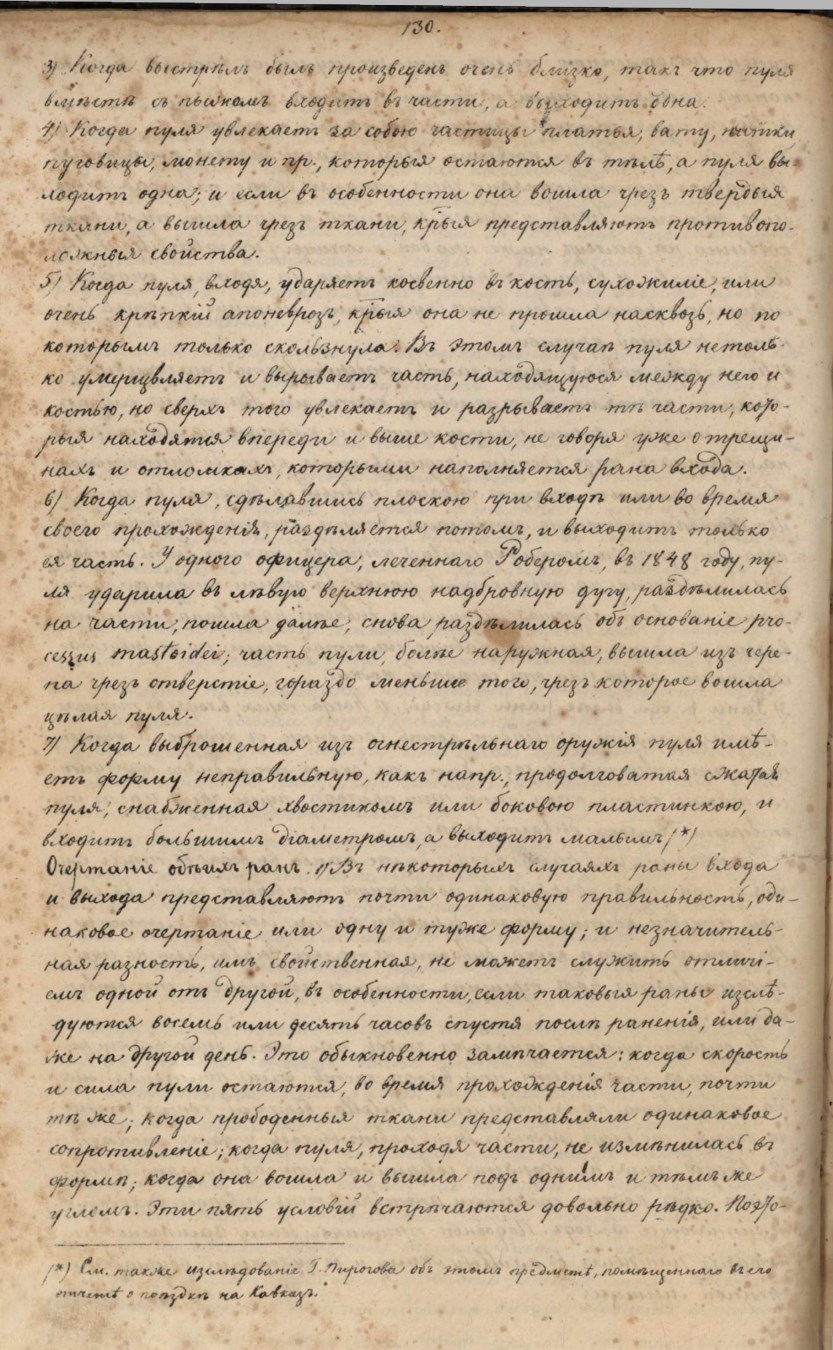 130.
3) Когда выстрѣлъ былъ произведенъ очень близко, такъ что пуля
вмѣстѣ съ пыжомъ входитъ въ части, а выходитъ одна.
4) Когда пуля увлекаетъ за собою частицы платья, вату, нитки
пуговицы, монету и пр., которыя остаются въ тѣлѣ, а пуля вы-
ходитъ одна; и если въ особенности она вошла чрезъ твердыя
ткани, а вышла чрезъ ткани, крыя представляютъ противопо-
ложныя свойства.
5) Когда пуля, входя, ударяетъ косвенно въ кость, сухожиліе, или
очень крѣпкій апоневрозъ, крыя она не прошла насквозь, но по
которымъ только скользнула. Въ этомъ случаѣ пуля нетоль-
ко умерщвляетъ и вырываетъ часть, находящуюся между нею и
костью, но сверхъ того увлекаетъ и разрываетъ тѣ части, кото-
рыя находятся впереди и выше кости, не говоря уже о трещи-
нахъ и отломкахъ, которыми наполняется рана входа.
6) Когда пуля, сдѣлавшись плоскою при входѣ или во время
своего прохожденія, раздѣляется потомъ, и выходитъ только
ея часть. У одного офицера, леченнаго Роберомъ, въ 1848 году, пу-
ля ударила въ лѣвую верхнюю надбровную дугу, раздѣлилась
на части, пошла далѣе, снова раздѣлилась объ основаніе pro-
cessus mastoidei; часть пули, болѣе наружная, вышла изъ чере-
па чрезъ отверстіе, гораздо меньше того, чрезъ которое вошла
цѣлая пуля.
7) Когда выброшенная изъ огнестрѣльнаго оружія пуля имѣ-
етъ форму неправильную, какъ напр., продолговатая сжатая
пуля, снабженная хвостикомъ или боковою пластинкою, и
входитъ большимъ діаметромъ, а выходитъ малымъ (*)
Очертаніе обѣихъ ранъ. 1) Въ нѣкоторыхъ случаяхъ раны входа
и выхода представляютъ почти одинаковую правильность, оди-
наковое очертаніе или одну и туже форму; и незначитель-
ная разность, имъ свойственная, не можетъ служить отличі-
емъ одной отъ другой, въ особенности, если таковыя раны изслѣ-
дуются восемь или десять часовъ спустя послѣ раненія, или да-
же на другой день. Это обыкновенно замѣчается: когда скорость
и сила пули остаются, во время прохожденія части, почти
тѣ же; когда прободенныя ткани представляли одинаковое
сопротивленіе; когда пуля, проходя части, не измѣнилась въ
формѣ; когда она вошла и вышла подъ однимъ и тѣмъ же
угломъ. Эти пять условій встрѣчаются довольно рѣдко. Поэто-
(*) См. также изслѣдованіе Г. Пирогова объ этомъ предметѣ, помѣщеннаго въ его
отчетѣ о поѣздкѣ на Кавказъ.